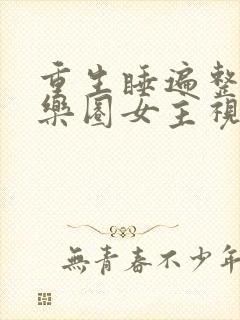 重生睡遍整
樂圈女主視
無青春不少年